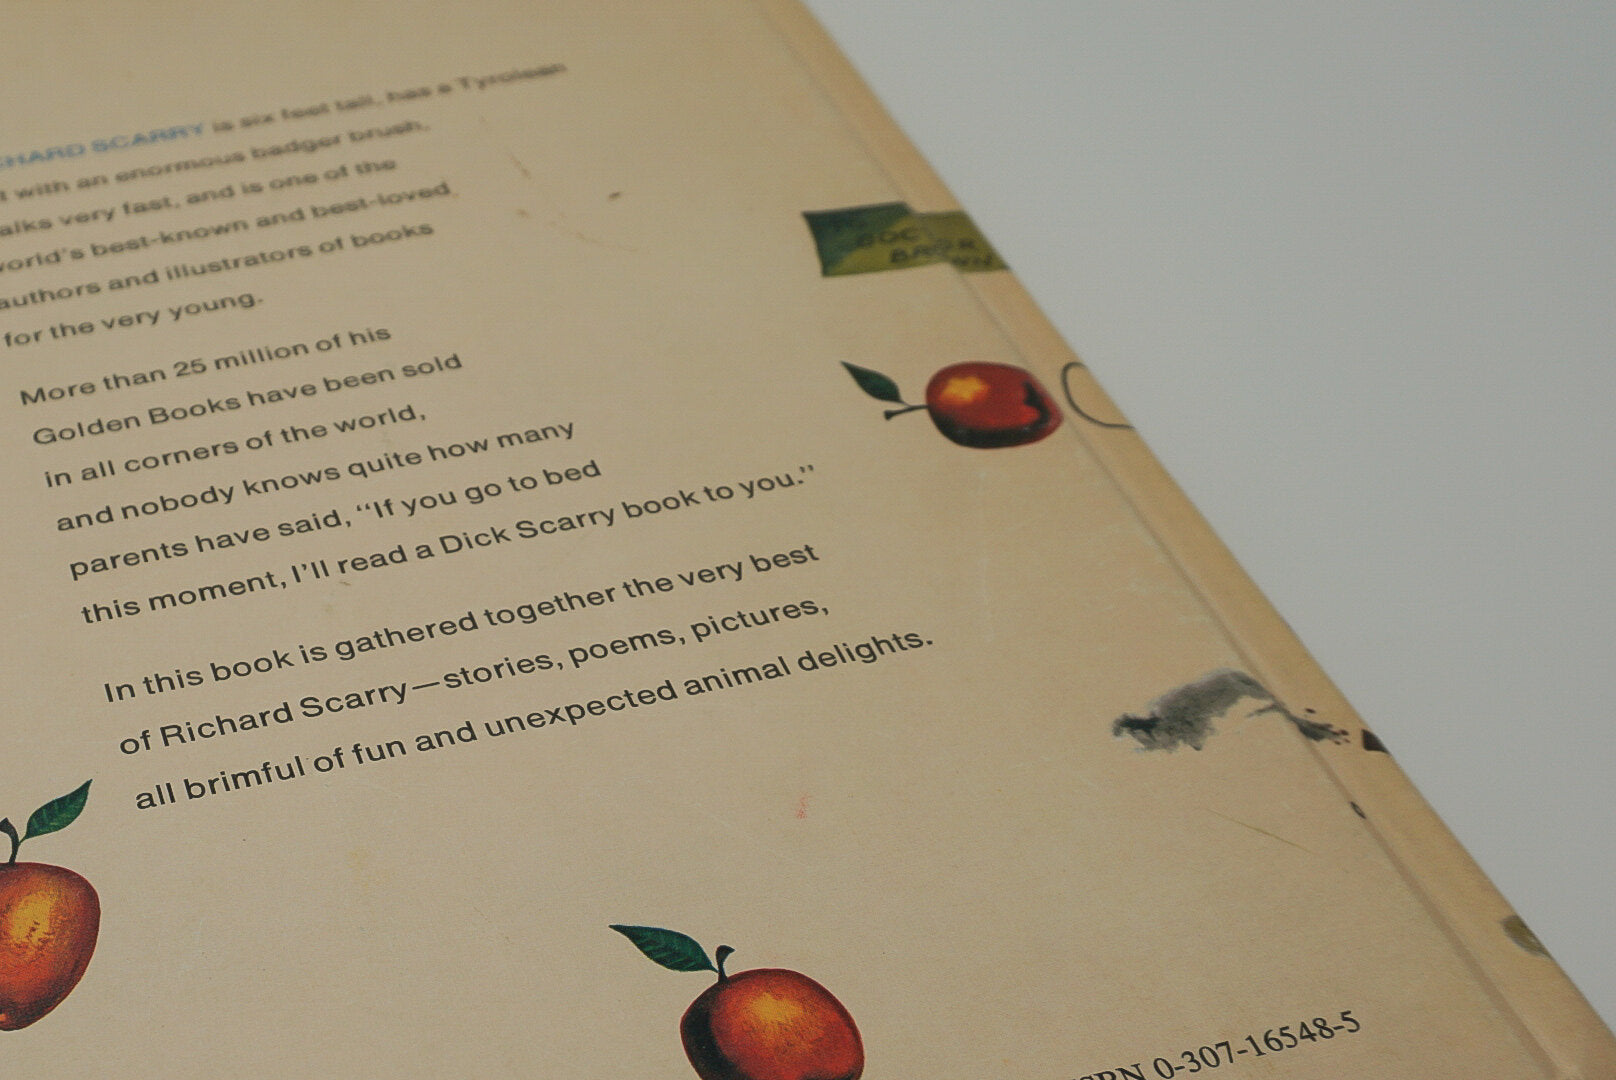 CHARD SCARRY is six feet tall, has a Tyrolean
t with an enormous badger brush,
alks very fast, and is one of the
world's best-known and best-loved
authors and illustrators of books
for the very young.
More than 25 million of his
Golden Books have been sold
in all corners of the world,
and nobody knows quite how many
parents have said, “If you go to bed
this moment, I'll read a Dick Scarry book to you.”
In this book is gathered together the very best
of Richard Scarry—stories, poems, pictures,
all brimful of fun and unexpected animal delights.
ISBN 0-307-16548-5